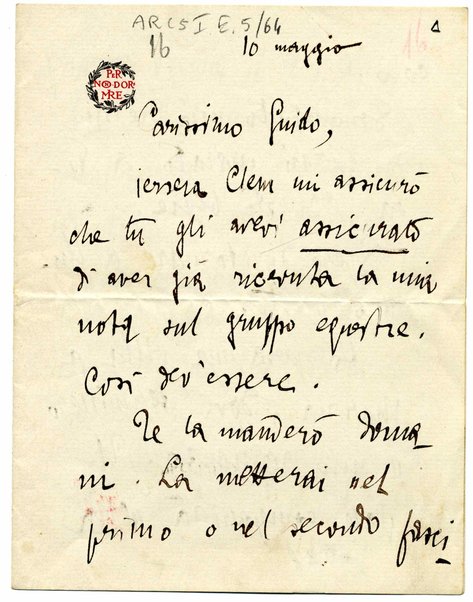 ARC5 I E. 5/64
16
16a
10 maggio
PER
NON DOR
MIRE
Carissimo Guido,
iersera Clem mi assicurò
che tu gli avevi assicurato
di aver già ricevuta la mia
nota sul gruppo equestre.
Così dev'essere.
Te la manderò doma
ni. La metterai nel
primo o nel secondo fasci